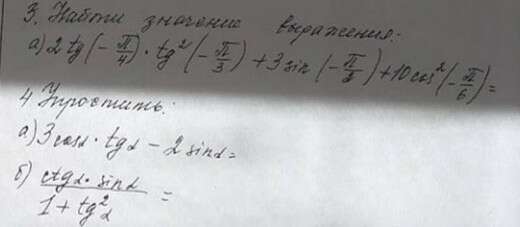 3. Найти значение выражения:
а) 2 tg(-π/4) · tg²(-π/3) + 3 sin(-π/3) + 10 cos²(-π/6) =
4 Упростить:
а) 3 cosα · tgα - 2 sinα =
б) ctgα · sinα / 1 + tg²α =